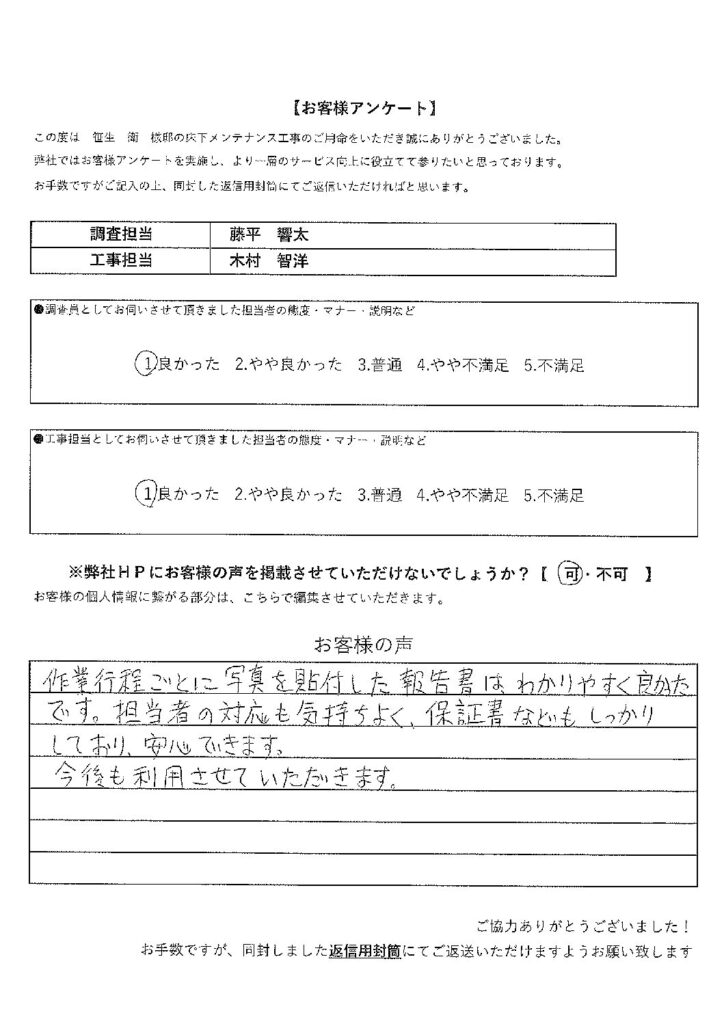 【お客様アンケート】
この度は　笹生　衛　様邸の床下メンテナンス工事のご用命をいただき誠にありがとうございました。
弊社ではお客様アンケートを実施し、より一層のサービス向上に役立てて参りたいと思っております。
お手数ですがご記入の上、同封した返信用封筒にてご返信いただければと思います。
調査担当　藤平　響太
工事担当　木村　智洋
●調査員としてお伺いさせて頂きました担当者の態度・マナー・説明など
1.良かった　2.やや良かった　3.普通　4.やや不満足　5.不満足
●工事担当としてお伺いさせて頂きました担当者の態度・マナー・説明など
1.良かった　2.やや良かった　3.普通　4.やや不満足　5.不満足
※弊社ＨＰにお客様の声を掲載させていただけないでしょうか？【　可・不可　】
お客様の個人情報に繋がる部分は、こちらで編集させていただきます。
お客様の声
作業行程ごとに写真を貼付した報告書はわかりやすく良かた
です。担当者の対応も気持ちよく、保証書などもしっかり
しており、安心できます。
今後も利用させていただきます。
ご協力ありがとうございました！
お手数ですが、同封しました返信用封筒にてご返送いただけますようお願い致します